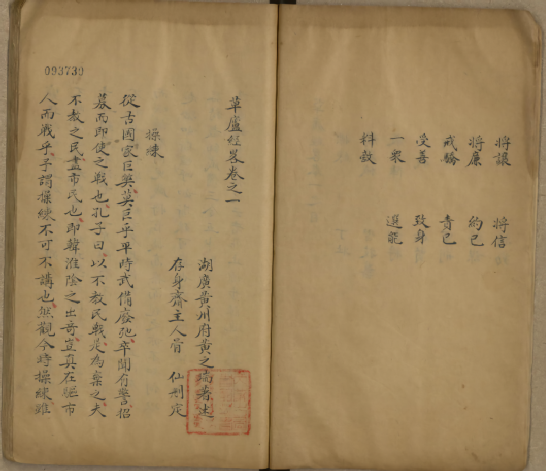 將謙 將信
將廉 約己
戒驕 責己
受善 致身
一衆 選能
料敵
草廬經畧卷之一
湖廣黃州府黃之瑞著述
存身齋主人 仙刑定
操練
從古國家巨奐莫巨乎平時武備廢弛卒聞有警招
募而即使之戰也孔子曰以不教民戰是為棄之夫
不教之民盡市民也即韓淮陰之出奇豈真在驅市
人而戰乎予謂操練不可不講也然觀今時操練雖
093730